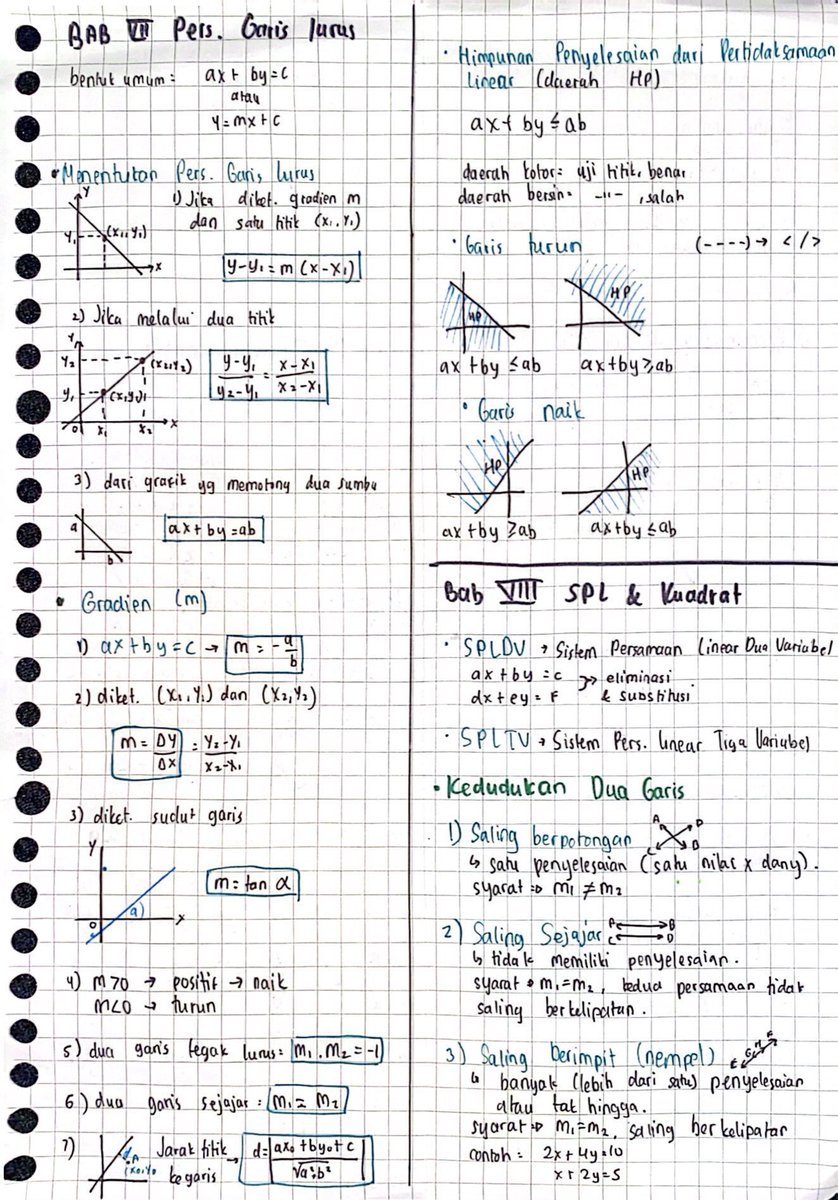 BAB VII Pers. Garis lurus
bentuk umum: ax + by = c
atau
y = mx + c
• Menentukan Pers. Garis lurus
1) Jika diket. gradien m
dan satu titik (x₁, y₁)
Y
Y₁
(x₁, y₁)
X
y - y₁ = m (x - x₁)
2) Jika melalui dua titik
Y
Y₂
(x₂, y₂)
Y₁
(x₁, y₁)
0
x₁
x₂
x
y - y₁ / y₂ - y₁ = x - x₁ / x₂ - x₁
3) dari grafik yg memotong dua sumbu
a
b
ax + by = ab
• Gradien (m)
1) ax + by = c → m = - a/b
2) diket. (x₁, y₁) dan (x₂, y₂)
m = Δy/Δx = y₂ - y₁ / x₂ - x₁
3) diket. sudut garis
Y
0
a)
X
m = tan α
4) m > 0 → positif → naik
m < 0 → turun
5) dua garis tegak lurus: m₁ . m₂ = -1
6) dua garis sejajar: m₁ = m₂
7) Jarak titik → d = | ax₀ + by₀ + c / √a²+b² |
ke garis
d
(x₀, y₀
• Himpunan Penyelesaian dari Pertidaksamaan
linear (daerah HP)
ax + by ≤ ab
daerah kotor = uji titik, benar
daerah bersih = -"- , salah
• Garis turun (----) → < / >
HP
HP
ax + by ≤ ab
ax + by ≥ ab
• Garis naik
HP
HP
ax + by ≥ ab
ax + by ≤ ab
Bab VIII SPL & Kuadrat
• SPLDV → Sistem Persamaan Linear Dua Variabel
ax + by = c
dx + ey = F
>> eliminasi
& substitusi
• SPLTV → Sistem Pers. linear Tiga Variabel
• Kedudukan Dua Garis
1) Saling berpotongan
A D
C B
↳ satu penyelesaian (satu nilai x dan y).
syarat ⇒ m₁ ≠ m₂
2) Saling Sejajar
A B
C D
↳ tidak memiliki penyelesaian.
syarat ⇒ m₁ = m₂, kedua persamaan tidak
saling berkelipatan.
3) Saling berimpit (nempel)
↳ banyak (lebih dari satu) penyelesaian
atau tak hingga.
syarat ⇒ m₁ = m₂, saling berkelipatan
contoh = 2x + 4y = 10
x + 2y = 5